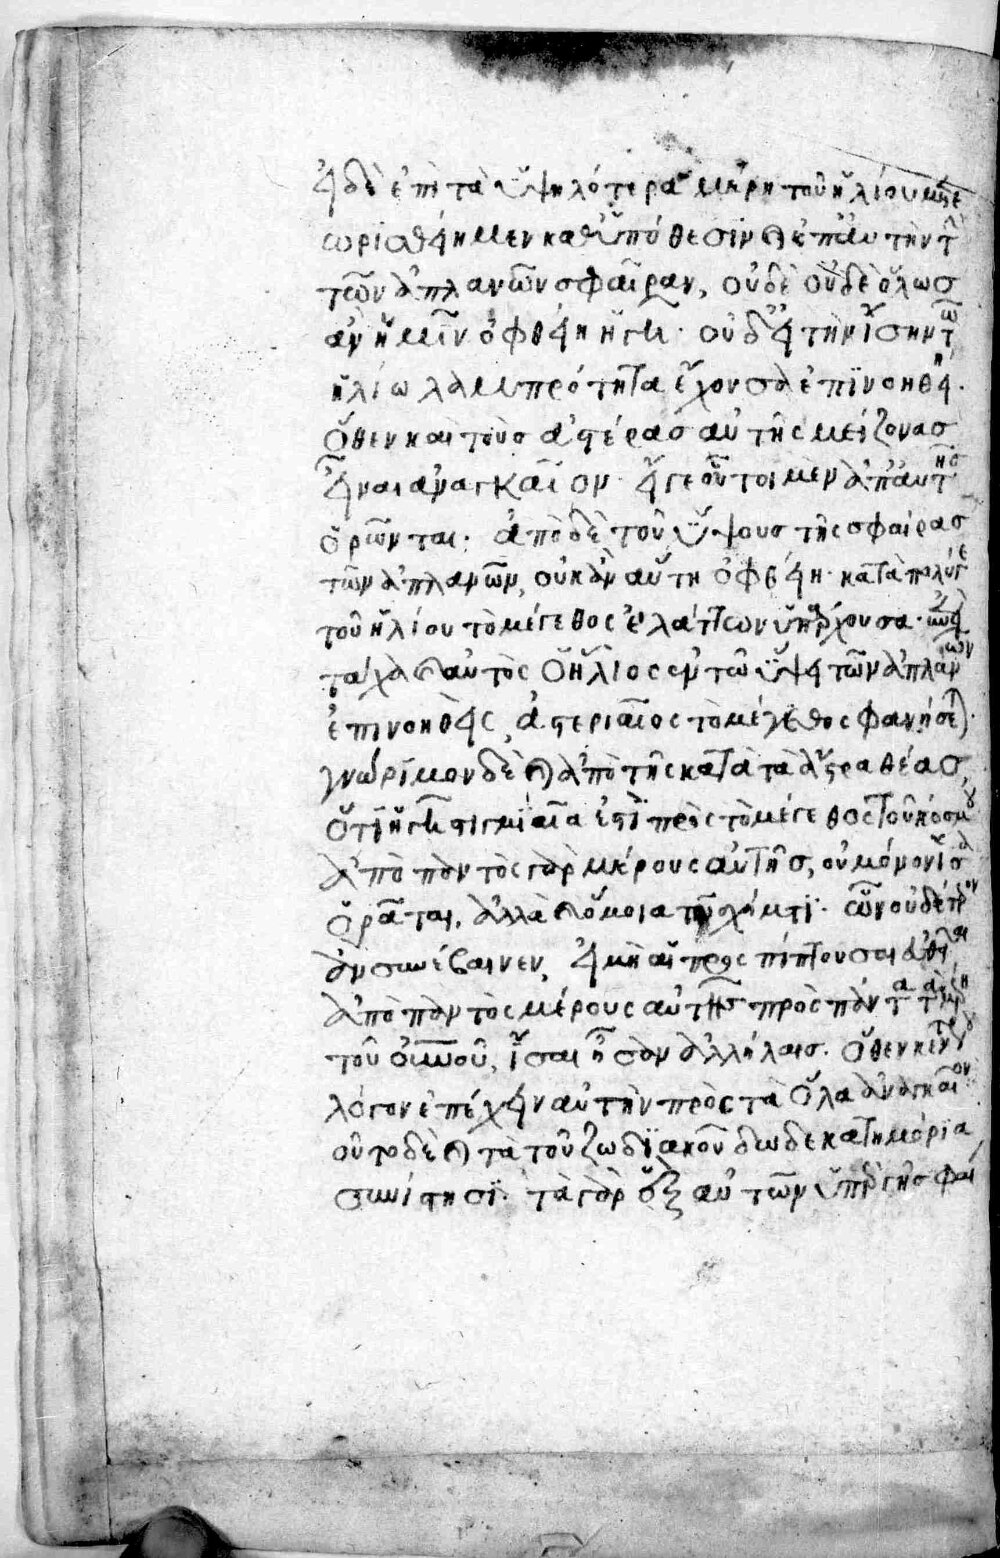 εἰ δὲ ἐπὶ τὰ ὑψηλότερα μέρη τοῦ ἡλίου μετε
ωρισθείημεν καθ' ὑπόθεσιν καὶ ἐπ' αὐτὴν τὴν
τῶν ἀπλανῶν σφαῖραν, οὐδὲ οὐδὲ ὅλως
ἂν ἡμῖν ὀφθείη ἡ γῆ· οὐδ' εἰ τὴν ἴσην τῶ
ἡλίω λαμπρότητα ἔχουσα ἐπινοηθείη.
ὅθεν καὶ τοὺς ἀστέρας αὐτῆς μείζονας
εἶναι ἀναγκαῖον· εἴγε οὗτοι μὲν ἀπ' αὐτῆς
ὁρῶνται· ἀπὸ δὲ τοῦ ὕψους τῆς σφαίρας
τῶν ἀπλανῶν, οὐκ ἂν αὕτη ὀφθείη· κατὰ πολύ γε
τοῦ ἡλίου τὸ μέγεθος ἐλάττων ὑπάρχουσα·
τάχα καὶ αὐτὸς ὁ ἥλιος ἐν τῶ ὕψει τῶν ἀπλανῶν
ἐπινοηθεὶς, ἀστεριαῖος τὸ μέγεθος φανήσεται.
γνώριμον δὲ καὶ ἀπὸ τῆς κατὰ τὰ ἄστρα θέας,
ὅτι ἡ γῆ στιγμιαία ἐστὶ πρὸς τὸ μέγεθος τοῦ κόσμου
ἀπὸ παντὸς γὰρ μέρους αὐτῆς, οὐ μόνον ἴσα
ὁρᾶται, ἀλλὰ καὶ ὅμοια τῶ σχήματι· ὧν οὐδέτερον
ἂν συνέβαινεν, εἰ μὴ αἱ προσπίπτουσαι εὐθεῖαι
ἀπὸ παντὸς μέρους αὐτῆς πρὸς πάντα τὰ μέρη
τοῦ οὐρανοῦ, ἴσαι ἦσαν ἀλλήλαις. ὅθεν κέντρου
λόγον ἐπέχειν αὐτὴν πρὸς τὰ ὅλα ἀναγκαῖον·
οὕτω δὲ καὶ τὰ τοῦ ζωδιακοῦ δωδεκατημόρια
συνίστησι· τὰ γὰρ ἓξ αὐτῶν ὑπὲρ γῆς φαι